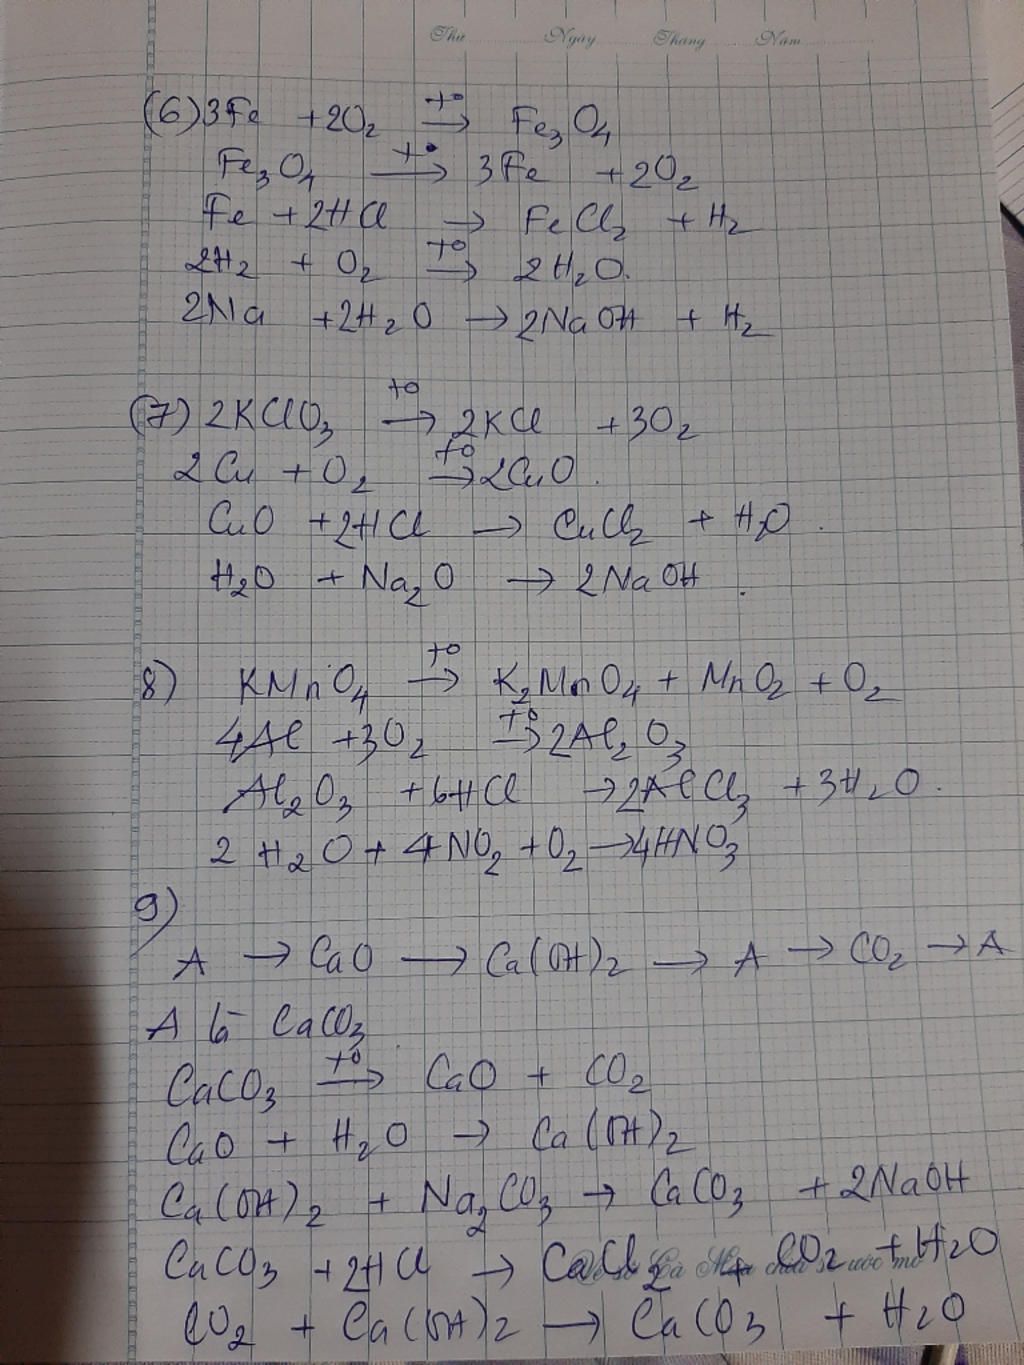 Thứ Ngày Tháng Năm
(6) 3Fe + 2O₂ →(t°) Fe₃O₄
Fe₃O₄ →(t°) 3Fe + 2O₂
Fe + 2HCl → FeCl₂ + H₂
2H₂ + O₂ →(t°) 2H₂O.
2Na + 2H₂O → 2NaOH + H₂
(7) 2KClO₃ →(t°) 2KCl + 3O₂
2Cu + O₂ →(t°) 2CuO.
CuO + 2HCl → CuCl₂ + H₂O.
H₂O + Na₂O → 2NaOH.
8) KMnO₄ →(t°) K₂MnO₄ + MnO₂ + O₂
4Al + 3O₂ →(t°) 2Al₂O₃
Al₂O₃ + 6HCl → 2AlCl₃ + 3H₂O.
2H₂O + 4NO₂ + O₂ → 4HNO₃
9)
A → CaO → Ca(OH)₂ → A → CO₂ → A
A là CaCO₃
CaCO₃ →(t°) CaO + CO₂
CaO + H₂O → Ca(OH)₂
Ca(OH)₂ + Na₂CO₃ → CaCO₃ + 2NaOH
CaCO₃ + 2HCl → CaCl₂ + CO₂ + H₂O
CO₂ + Ca(OH)₂ → CaCO₃ + H₂O